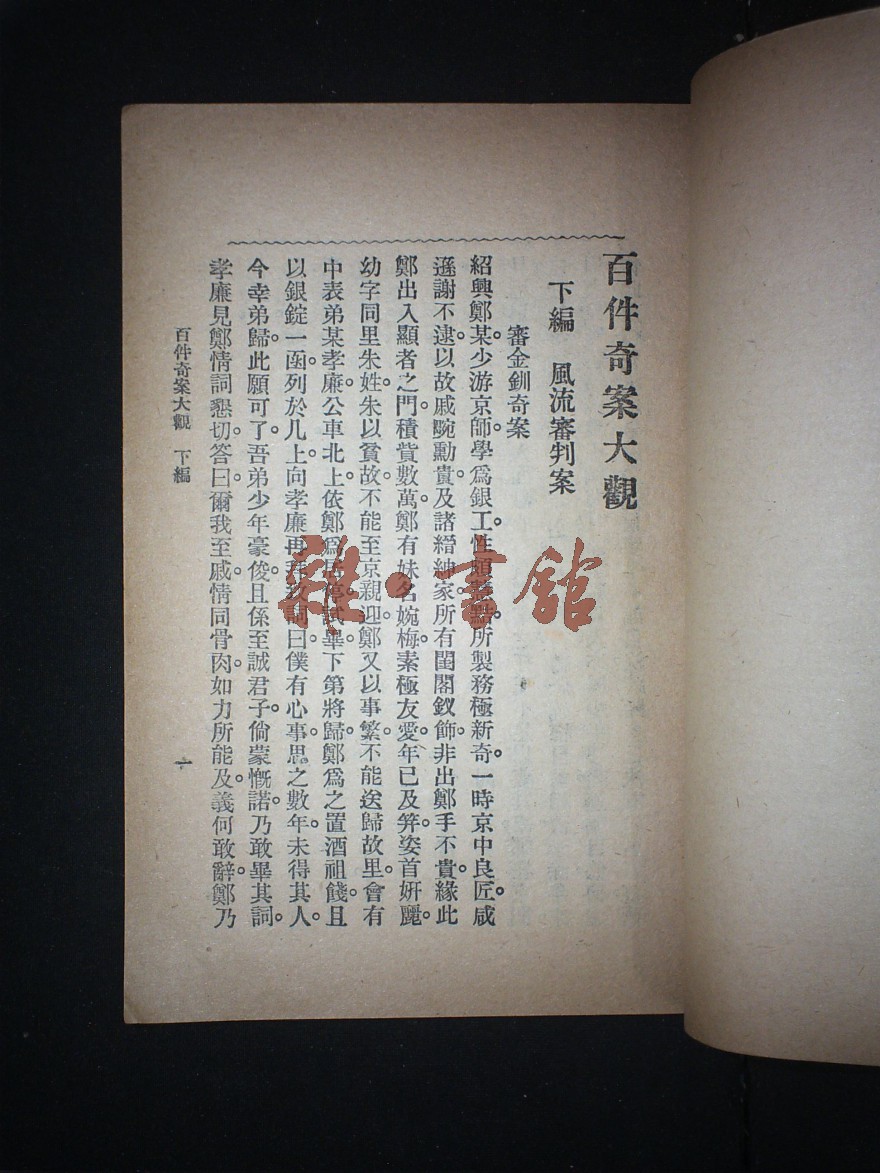 百件奇案大觀
下編　風流審判案
審金釧奇案
紹興鄭某。少游京師學爲銀工。性頗慧黠。所製務極新奇。一時京中良匠。咸
遜謝不逮。以故戚畹勳貴。及諸縉紳家。所有閨閣釵飾。非出鄭手不貴。緣此
鄭出入顯者之門。積貲數萬。鄭有妹名婉梅。素極友愛。年已及笄。姿首妍麗。
幼字同里朱姓。朱以貧故。不能至京親迎。鄭又以事繁。不能送歸故里。會有
中表弟某孝廉。公車北上。依鄭爲居停。試畢下第將歸。鄭爲之置酒祖餞。且
以銀錠一函。列於几上。向孝廉再拜致詞曰。僕有心事。思之數年。未得其人。
今幸弟歸。此願可了。吾弟少年豪俊。且係至誠君子。倘蒙慨諾。乃敢畢其詞。
孝廉見鄭情詞懇切。答曰。爾我至戚。情同骨肉。如力所能及。義何敢辭。鄭乃
百件奇案大觀　下編
一
雜·書館